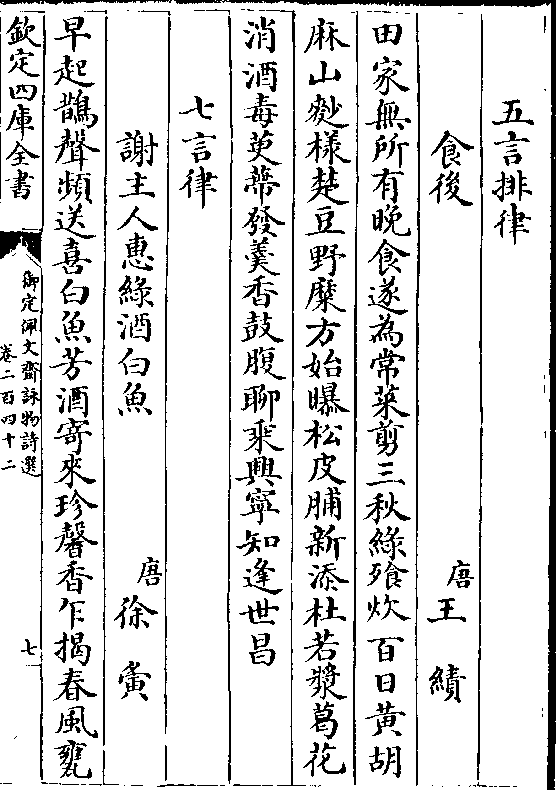 五言排律
食後　唐王績
田家無所有晚食遂為常菜剪三秋綠飱炊百日黃胡
麻山麨樣楚豆野糜方始曝松皮脯新添杜若漿葛花
消酒毒萸蔕發羹香鼓腹聊乘興寧知逢世昌
七言律
謝主人惠綠酒白魚　唐徐夤
早起鵲聲頻送喜白魚芳酒寄來珍馨香乍揭春風甕
欽定四庫全書
御定佩文齋詠物詩選
卷二百四十二
七